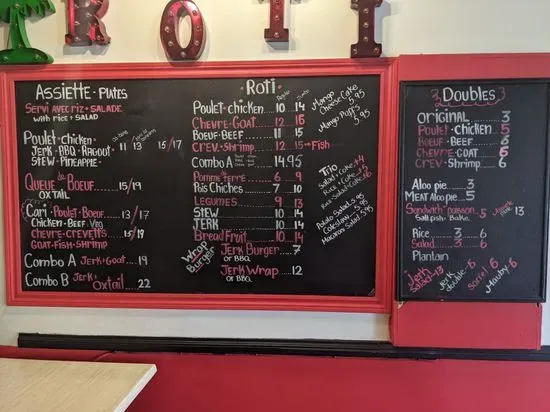 ROTI
Assiette · Plates
Servi avec riz + salade
with rice + salad
Poulet · chicken
Jerk · BBQ · Ragout 11 13 15/17
Stew · Pineapple
Queue de Boeuf 15/19
Oxtail
Cari · Poulet · Boeuf 13/17
Chicken · Beef Veg
Chevre · Crevette 15/17
Goat · Fish · Shrimp
Combo A Jerk + Goat 19
Combo B Jerk + Oxtail 22
Roti
Poulet · chicken 10 14
Chevre · Goat 12 16
Boeuf · Beef 11 15
Crev · Shrimp 12 15 → Fish
Combo A 14.95
Pomme de terre 6 9
Pois Chiches 7 10
Legumes 9 13
Stew 10 14
Jerk 10 14
Bread Fruit 10 14
Wrap Burger
Jerk Burger 7
or BBQ
Jerk Wrap 12
or BBQ
Mango Cheese Cake 5.95
Mango Puffs 5.95
Trio
Salad + Cake 4
Rice + Cake 5
Rice · Salad · Cake 6
Potato Salad 5.95
Coleslaw 5.95
Macaroni Salad 5.95
Doubles
Original 3
Poulet · Chicken 5
Boeuf · Beef 6
Chevre · Goat 6
Crev · Shrimp 6
Aloo pie 5
Meat Aloo pie 5
Sandwich poisson 5
Saltfish · Bake 13
Rice 3 6
Salad 3 6
Plantain
Jerk Salad - 13
Jerk double - 6
Sorrel 6
Mauby 6